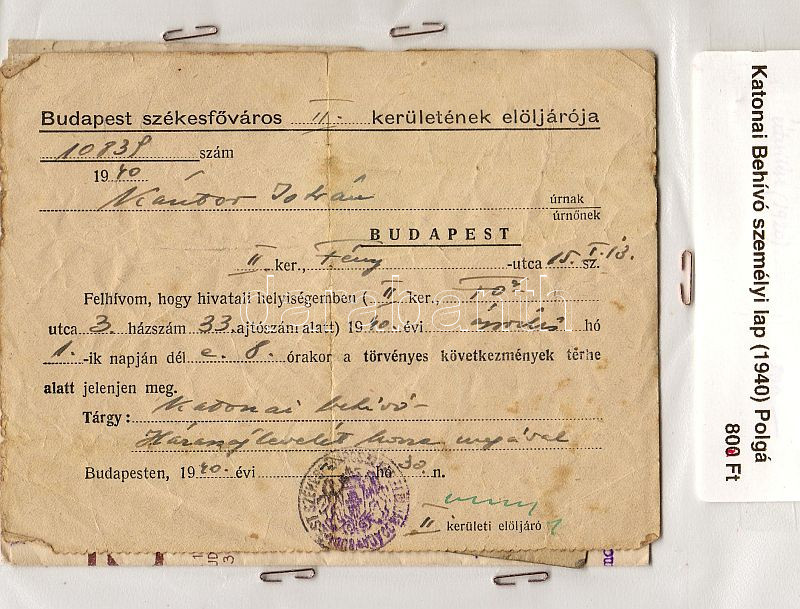 Budapest székesfőváros II. kerületének elöljárója
10839 szám
1940
Kántor István úrnak
úrnőnek
BUDAPEST
II ker., Fény -utca 15. sz. I. 13.
Felhívom, hogy hivatali helyiségemben ( II ker.,
utca 3. házszám 33. ajtószám alatt) 1940. évi hó
1. -ik napján dél e. 8. órakor a törvényes következmények terhe
alatt jelenjen meg.
Tárgy: Katonai behívó-
levelét hozza magával
Budapesten, 1940. évi hó 30 n.
II kerületi elöljáró
darabanth
Katonai Behívó személyi lap (1940) Polgá
800 Ft